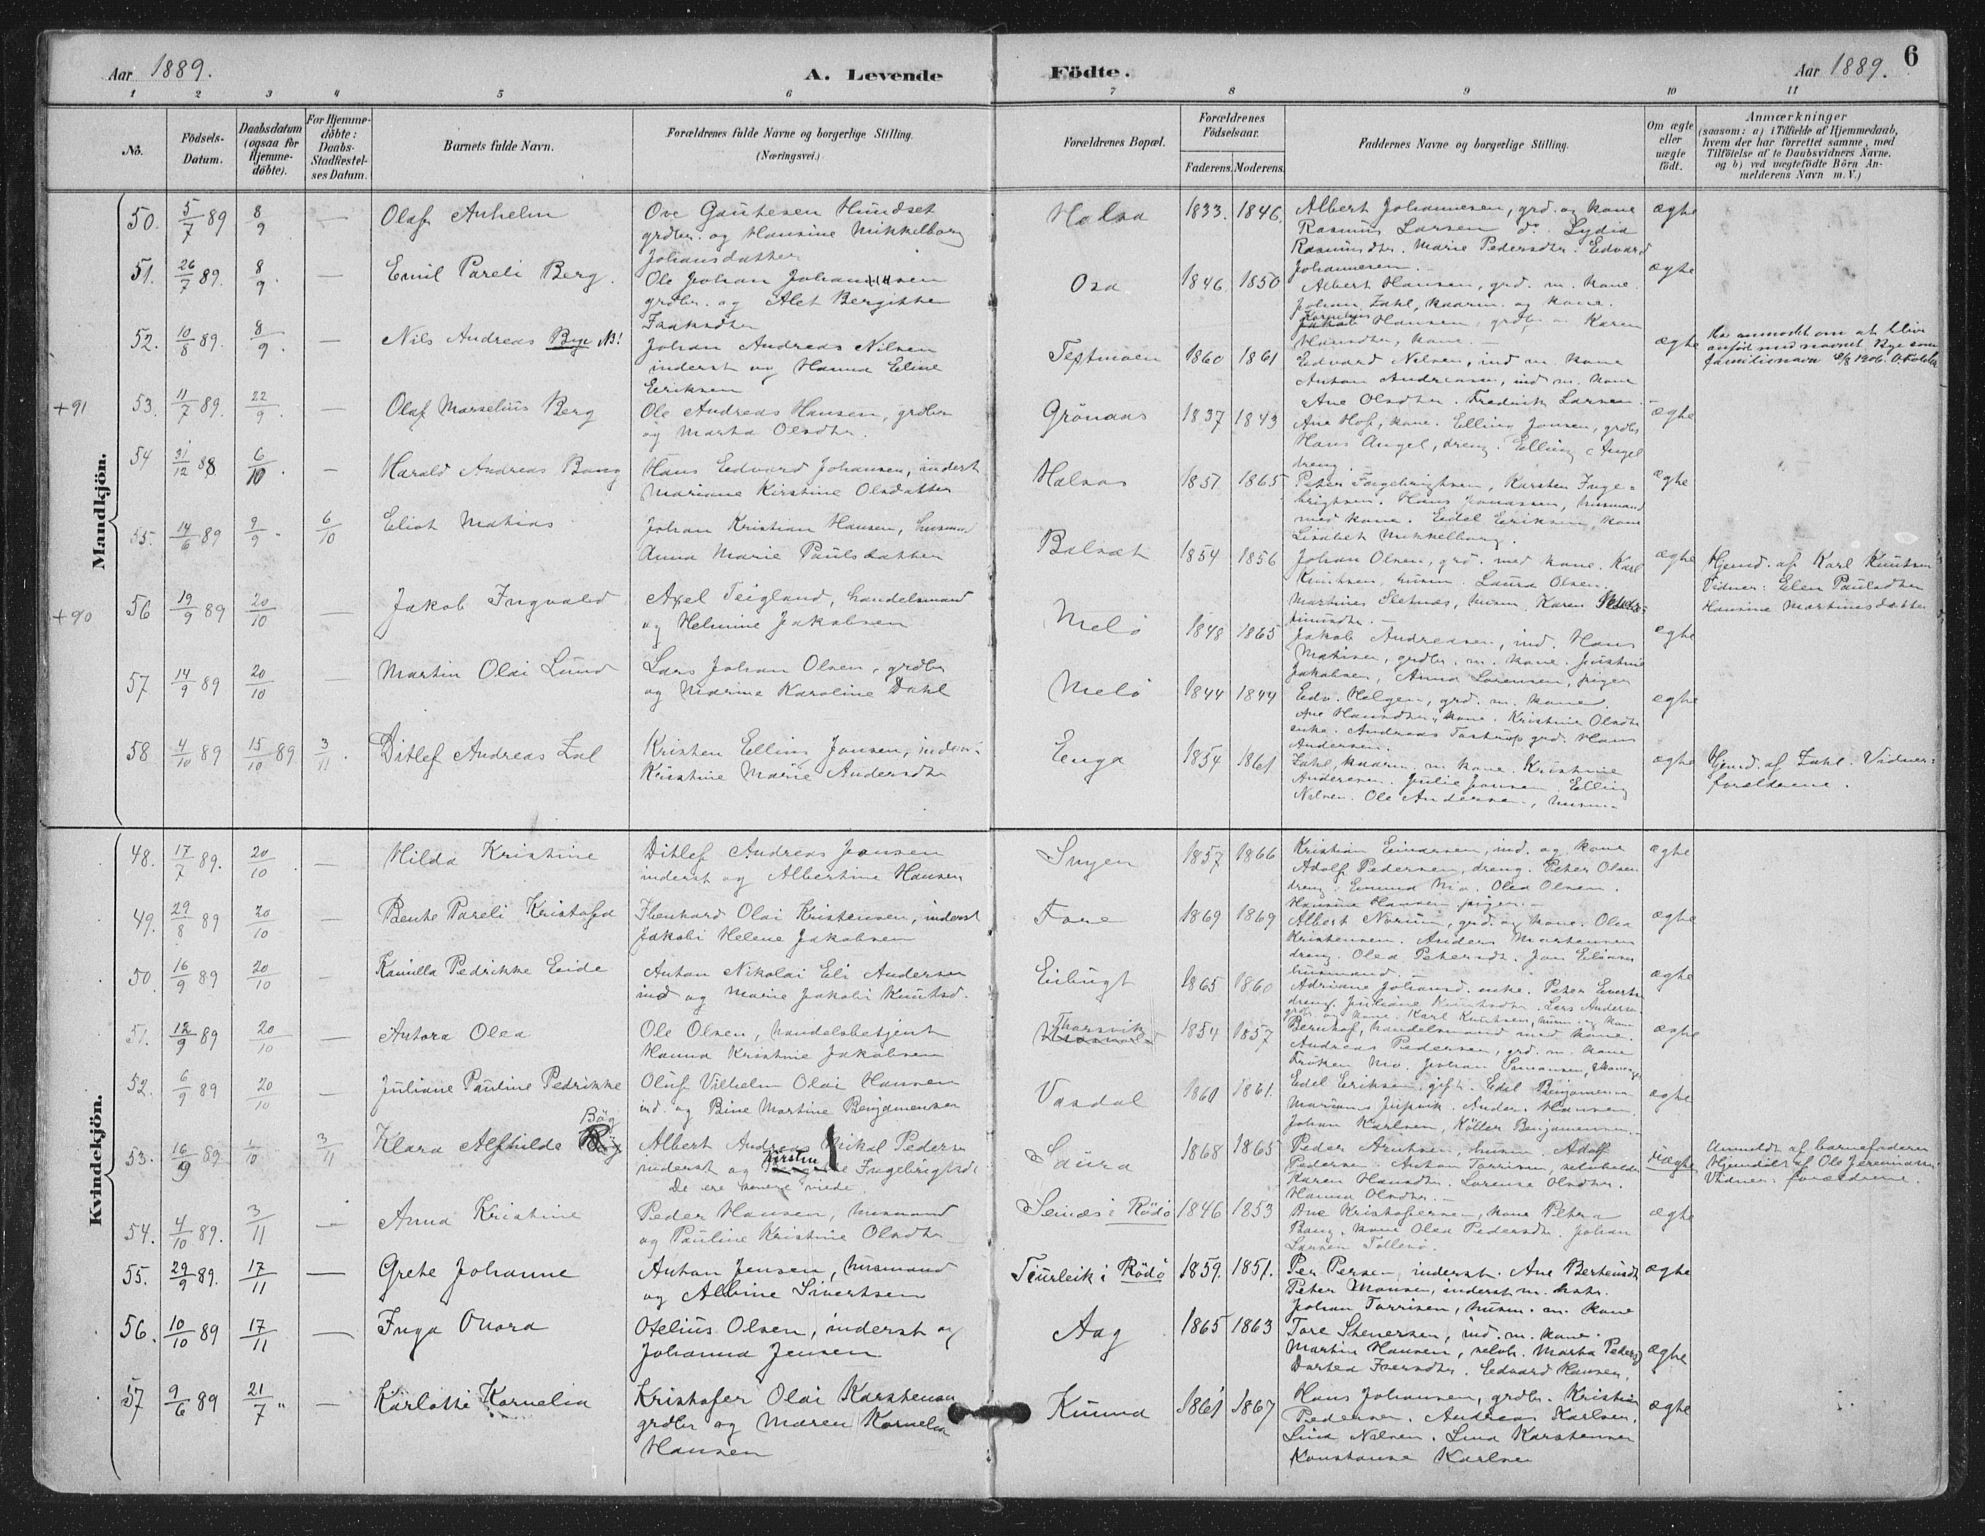 Aar 1889.
A. Levende
Födte.
Aar 1889.
6
1 2 3 4 5 6 7 8 9 10 11
No.
Födsels-
Datum.
Daabsdatum
(ogsaa for
Hjemme-
döbte).
For Hjemme-
döbte:
Daabs-
Stadfæstel-
ses Datum.
Barnets fulde Navn.
Forældrenes fulde Navne og borgerlige Stilling.
(Næringsvei.)
Forældrenes Bopæl.
Forældrenes
Födselsaar.
Faderens. Moderens.
Faddernes Navne og borgerlige Stilling.
Om ægte
eller
uægte
födt.
Anmærkninger
(saasom: a) i Tilfælde af Hjemmedaab,
hvem der har forrettet samme, med
Tilföielse af to Daabsvidners Navne,
og b) ved uægtefödte Börn An-
melderens Navn m. V.)
Mandkjön.
50. 5/7 89 8/9 — Olaf Anhelm
Ove Gautesen Hundset
grdbr. og Hansine Mikkelborg
Johansdatter
Halsa 1833. 1846.
Albert Johannesen, grd. og kone
Rasmus Larsen do. Lydia
Rasmusdtr. Marie Pedersdtr. Edvard
Johannesen.
ægte
51. 26/7 89. 8/9 — Emil Pareli Berg.
Ole Johan Johansen
grdbr. og Alet Bergitte
Isaksdtr
Osa 1846. 1850
Albert Hansen, grd. m. kone.
Johan Zahl, husm. og kone.
Kornelius Hansen, grdbr
Hansdtr, kone.
ægte
52. 10/8 89. 8/9. — Nils Andreas Bye NB!
Johan Andreas Nilsen
inderst og Hanna Eline
Eriksen
1860 1861
Edvard Nilsen, ind m. kone
Anton Andreassen, ind m. kone
Ane Olsdtr. Fredrik Larsen.
ægte
Har anmodet om at blive
anfört med navnet Bye som
familienavn 1906.
+91
53. 11/7 89. 22/9. — Olaf Marselius Berg
Ole Andreas Hansen, grdbr
og Marta Olsdtr.
Grönaas 1837 1843
Ane Hof, kone. Elling Jonsen, grdbr
Hans Angel, dreng. Elling Angel
dreng.
ægte
54 31/12 88 6/10. — Harald Andreas Bang
Hans Edvard Johansen, inderst
Mariane Kirstine Olsdatter
Halsos 1857 1865
Peter Ingebrigtsen, Karsten Inge-
brigtsen. Hans Jonassen, husmand
med kone. Edel Eriksen, kone
Lisabet Mikkelborg.
ægte
55. 14/6 89 9/9. 6/10 Eliot Matias
Johan Kristian Hansen, husmand
Anna Marie Paulsdatter
1854 1856
Johan Olsen, grd. med kone. Karl
Knutsen, husm. Laura Olsen.
Martines Sletnæs, husm. Karen
ægte
Hjemd. af Karl Knutsen
Vidner: Elen Paulsdtr
Hansine Martinusdatter
+90
56 19/9 89 20/10 — Jakob Ingvald
Axel Teigland, handelsmand
og Helmine Jakobsen
Melö 1848 1865
Jakob Andreasen, ind. Hans
Matisen, grdbr. m. kone. Justine
Jakobsen, Anna Sörensen, piger
ægte
57 14/9 89 20/10 — Martin Olai Lund
Lars Johan Olsen, grdbr
og Marine Karoline Dahl
Melö 1844 1844
Edv. Helgesen, grd. m. kone.
Ane Hansdtr, kone. Kristine Olsdtr
enke. Andreas Tostrup grd. Hans
Andersen.
ægte
58. 4/10 89 15/10 89 3/11. Ditlef Andreas Zal
Kristen Elling Jonsen, inders-
Kristine Marie Andersdtr
Enga 1854 1861
Zahl, husm. m. kone. Kristine
Andersen. Julie Jonsen. Elling
Nilsen. Ole Andersen, husm.
ægte
Hjemd. af Zahl. Vidner:
forældrene.
Kvindekjön.
48. 17/7 89. 20/10. — Hilda Kristine
Ditlef Andreas Jonsen
inderst og Albertine Hansen
1857 1866
Kristian Einarsen, ind. og kone
Adolf Pedersen, dreng. Peter Olsen
dreng. Emma Mo. Olea Olsen.
Hansine Hansen piger.
ægte
49. 29/8 89 20/10 — Bente Pareli Kristofa
Ibenhard Olai Kristensen, inderst
Jakobi Helene Jakobsen
Fore 1869 1869
Albert Norum, grd. og kone. Olea
Kristensen. Anders Mortensen
dreng. Olea Petersdt. Jon Eliassen
husmand.
ægte
50. 16/9 89 20/10 — Kamilla Pedrikke Eide
Anton Nikolai Eli Andersen
ind og Marie Jakobi Knutsd.
1865 1860
Adriane Johansd. enke. Peter Evertsen
dreng. Juliane Knutsdtr. Lars Andersen
grdb. og kone. Karl Knutsen, husm. og kone
ægte
51. 12/9 89 20/10 — Antora Olea
Ole Olsen, handelsbetjent
Hanna Kristine Jakobsen
Thorsvik 1854 1857
Bernhof, handelsmand med kone.
Andreas Pedersen, grd. m. kone
Fröken Mo. Johan
ægte
52. 6/9 89 20/10 — Juliane Pauline Pedrikke
Oluf Vilhelm Olai Hansen
ind. og Bine Martine Benjaminsen
Vasdal 1860 1861.
Edel Eriksen, gift. Edel Benjaminsen
Marianus. Anders Hansen
Johan Karlsen, Benjaminsen.
ægte
53. 16/9 89 3/11 Klara Alfhilde Bög
Albert Andreas Nikol Pedersen
inderst og Kirstine Ingebrigtsd.
De ere senere viede.
Saura 1868 1865
Peder Arntsen, husm. Adolf
Pedersen. Anton Torrisen, selvholder
Karen Hansdtr. Lorense Olsdtr.
Hanna Olsdtr.
uægte
Anmeldt af barnefaderen
Hjemdöbt af Ole Jeremiassen
Vidner: forældrene.
54. 4/10 89. 3/11 — Anna Kristine
Peder Hansen, husmand
og Pauline Kristine Olsdtr
Seinæs i Rödö 1846 1853
Ane Kristofersen, kone Petra
Bang, kone Olea Pedersdtr. Johan
Larsen
ægte
55. 29/9 89. 17/11 — Grete Johanne
Anton Jensen, husmand
og Albine Sivertsen
i Rödö 1859. 1851.
Per Persen, inderst. Ane Berteusdtr
Peter Monsen, inderst m. hstr.
Johan Torrisen, husm. m. kone
ægte
56. 10/10 89 17/11 — Inga Onora
Otelius Olsen, inderst og
Johanna Jensen
Aag 1865 1863
Tore Stenersen, ind. m. kone.
Martin Hansen, selvh. Marta Pedersd
Dortea Iversdtr. Edvard Hansen.
ægte
57 9/6 89 21/7 — Karlotte Kornelia
Kristofer Olai Karstensen
grdbr og Maren Kornelia
Hansen
Kunna 1861 1867
Hans Johansen, grdbr. Kristine
Pedersen. Andreas Karlsen.
Lina Nilsen. Lina Karstensen
Konstanse Karlsen
ægte